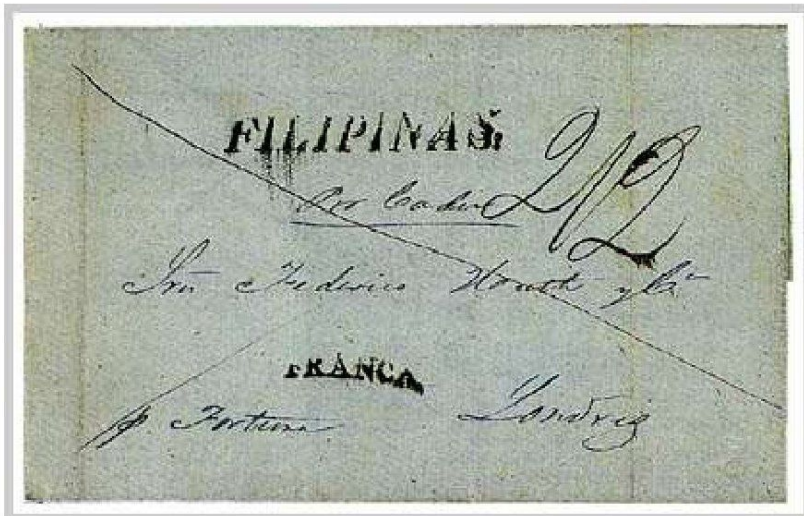 FILIPINAS.
Por Cadiz 2/2
Sres Federico Huth y Ca
FRANCA
p. Fortuna Londres